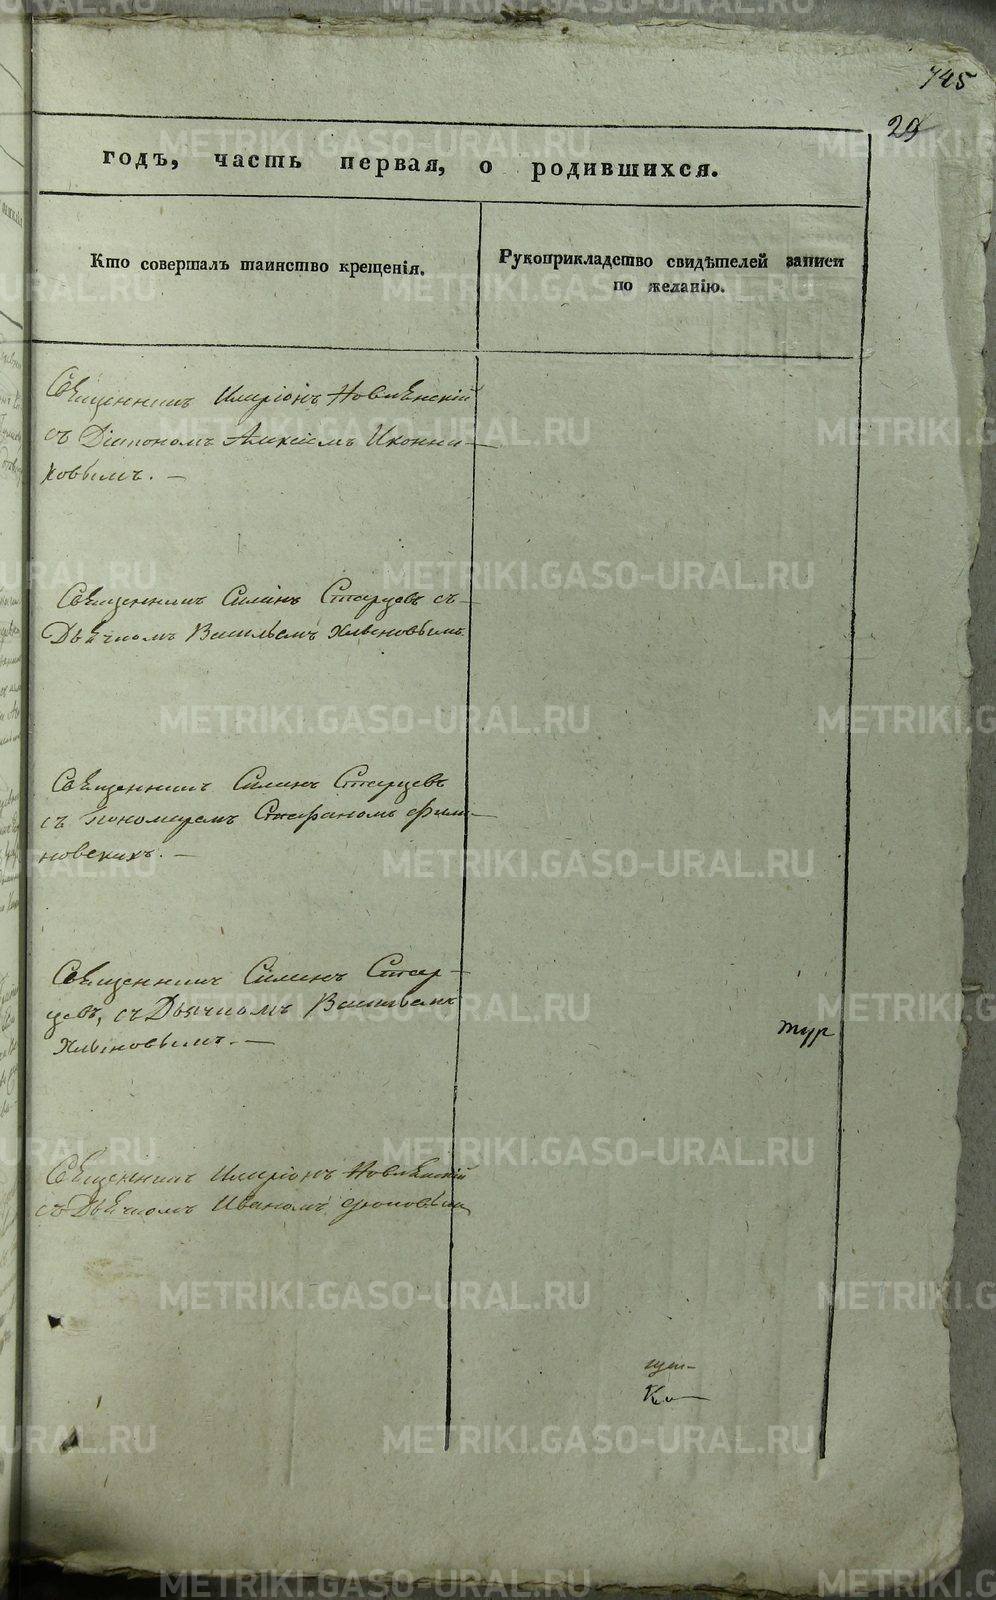 745
29
годъ, часть первая, о родившихся.
Кто совершалъ таинство крещенія.
Рукоприкладство свидѣтелей записи
по желанію.
Священникъ Иларіонъ Новлѣнскій
съ Діакономъ Алексіемъ Иконни-
ковымъ. —
Священникъ Силинъ Старцевъ съ
Дьячкомъ Васильемъ Хлыновымъ
Священникъ Силинъ Старцевъ
съ Пономаремъ Стефаномъ
новскихъ. —
Священникъ Силинъ Стар-
цевъ, съ Дьячкомъ Васильемъ
Хлыновымъ. —
тур
Священникъ Иларіонъ Новлѣнскій
съ Дьячкомъ Иваномъ
METRIKI.GASO-URAL.RU